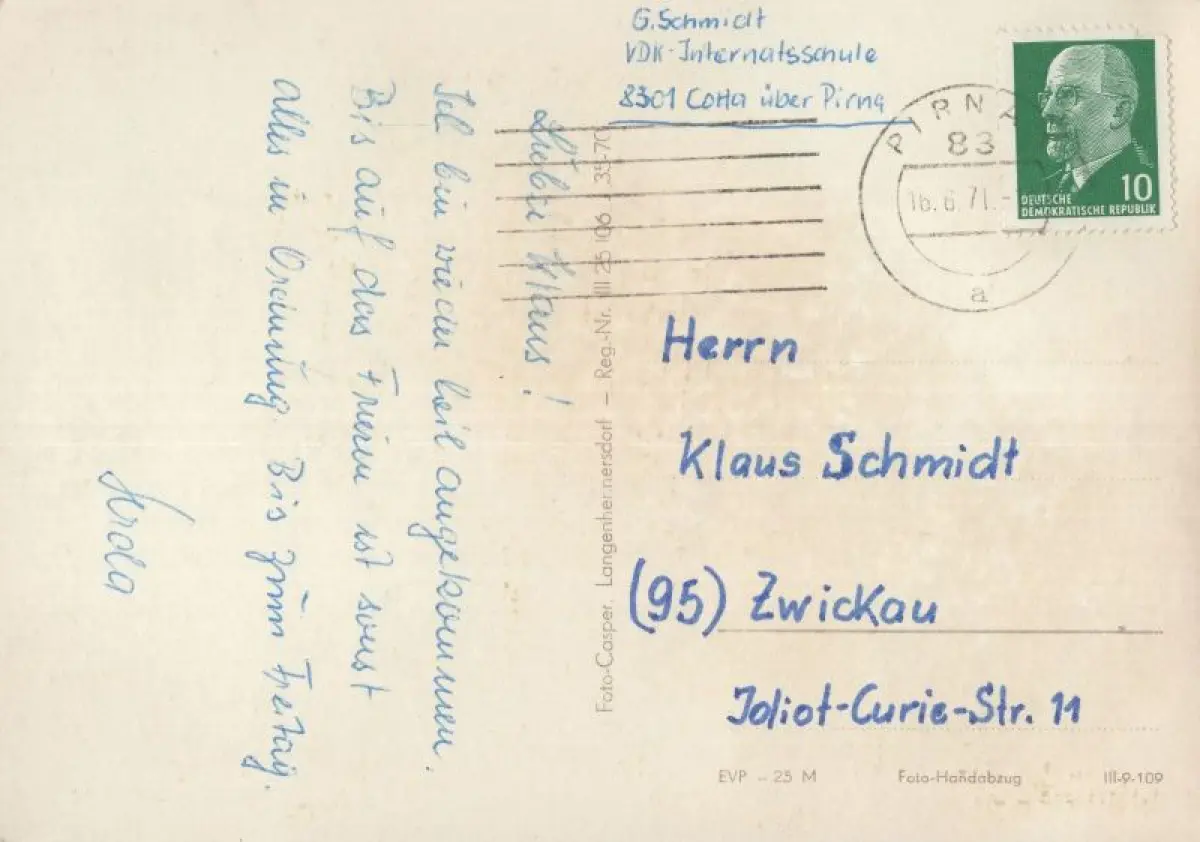 G. Schmidt
VDK-Internatsschule
8301 Cotta über Pirna
PIRNA
83
16.6.71.-
a
DEUTSCHE
DEMOKRATISCHE REPUBLIK
10
Lieber Klaus!
Ich bin wieder heil angekommen.
Bis auf das Frieren ist sonst
alles in Ordnung. Bis zum Freitag.
Gerda
Foto-Casper, Langenhennersdorf – Reg.-Nr. III 25 106 35-70
Herrn
Klaus Schmidt
(95) Zwickau
Joliot-Curie-Str. 11
EVP -.25 M
Foto-Handabzug
III-9-109